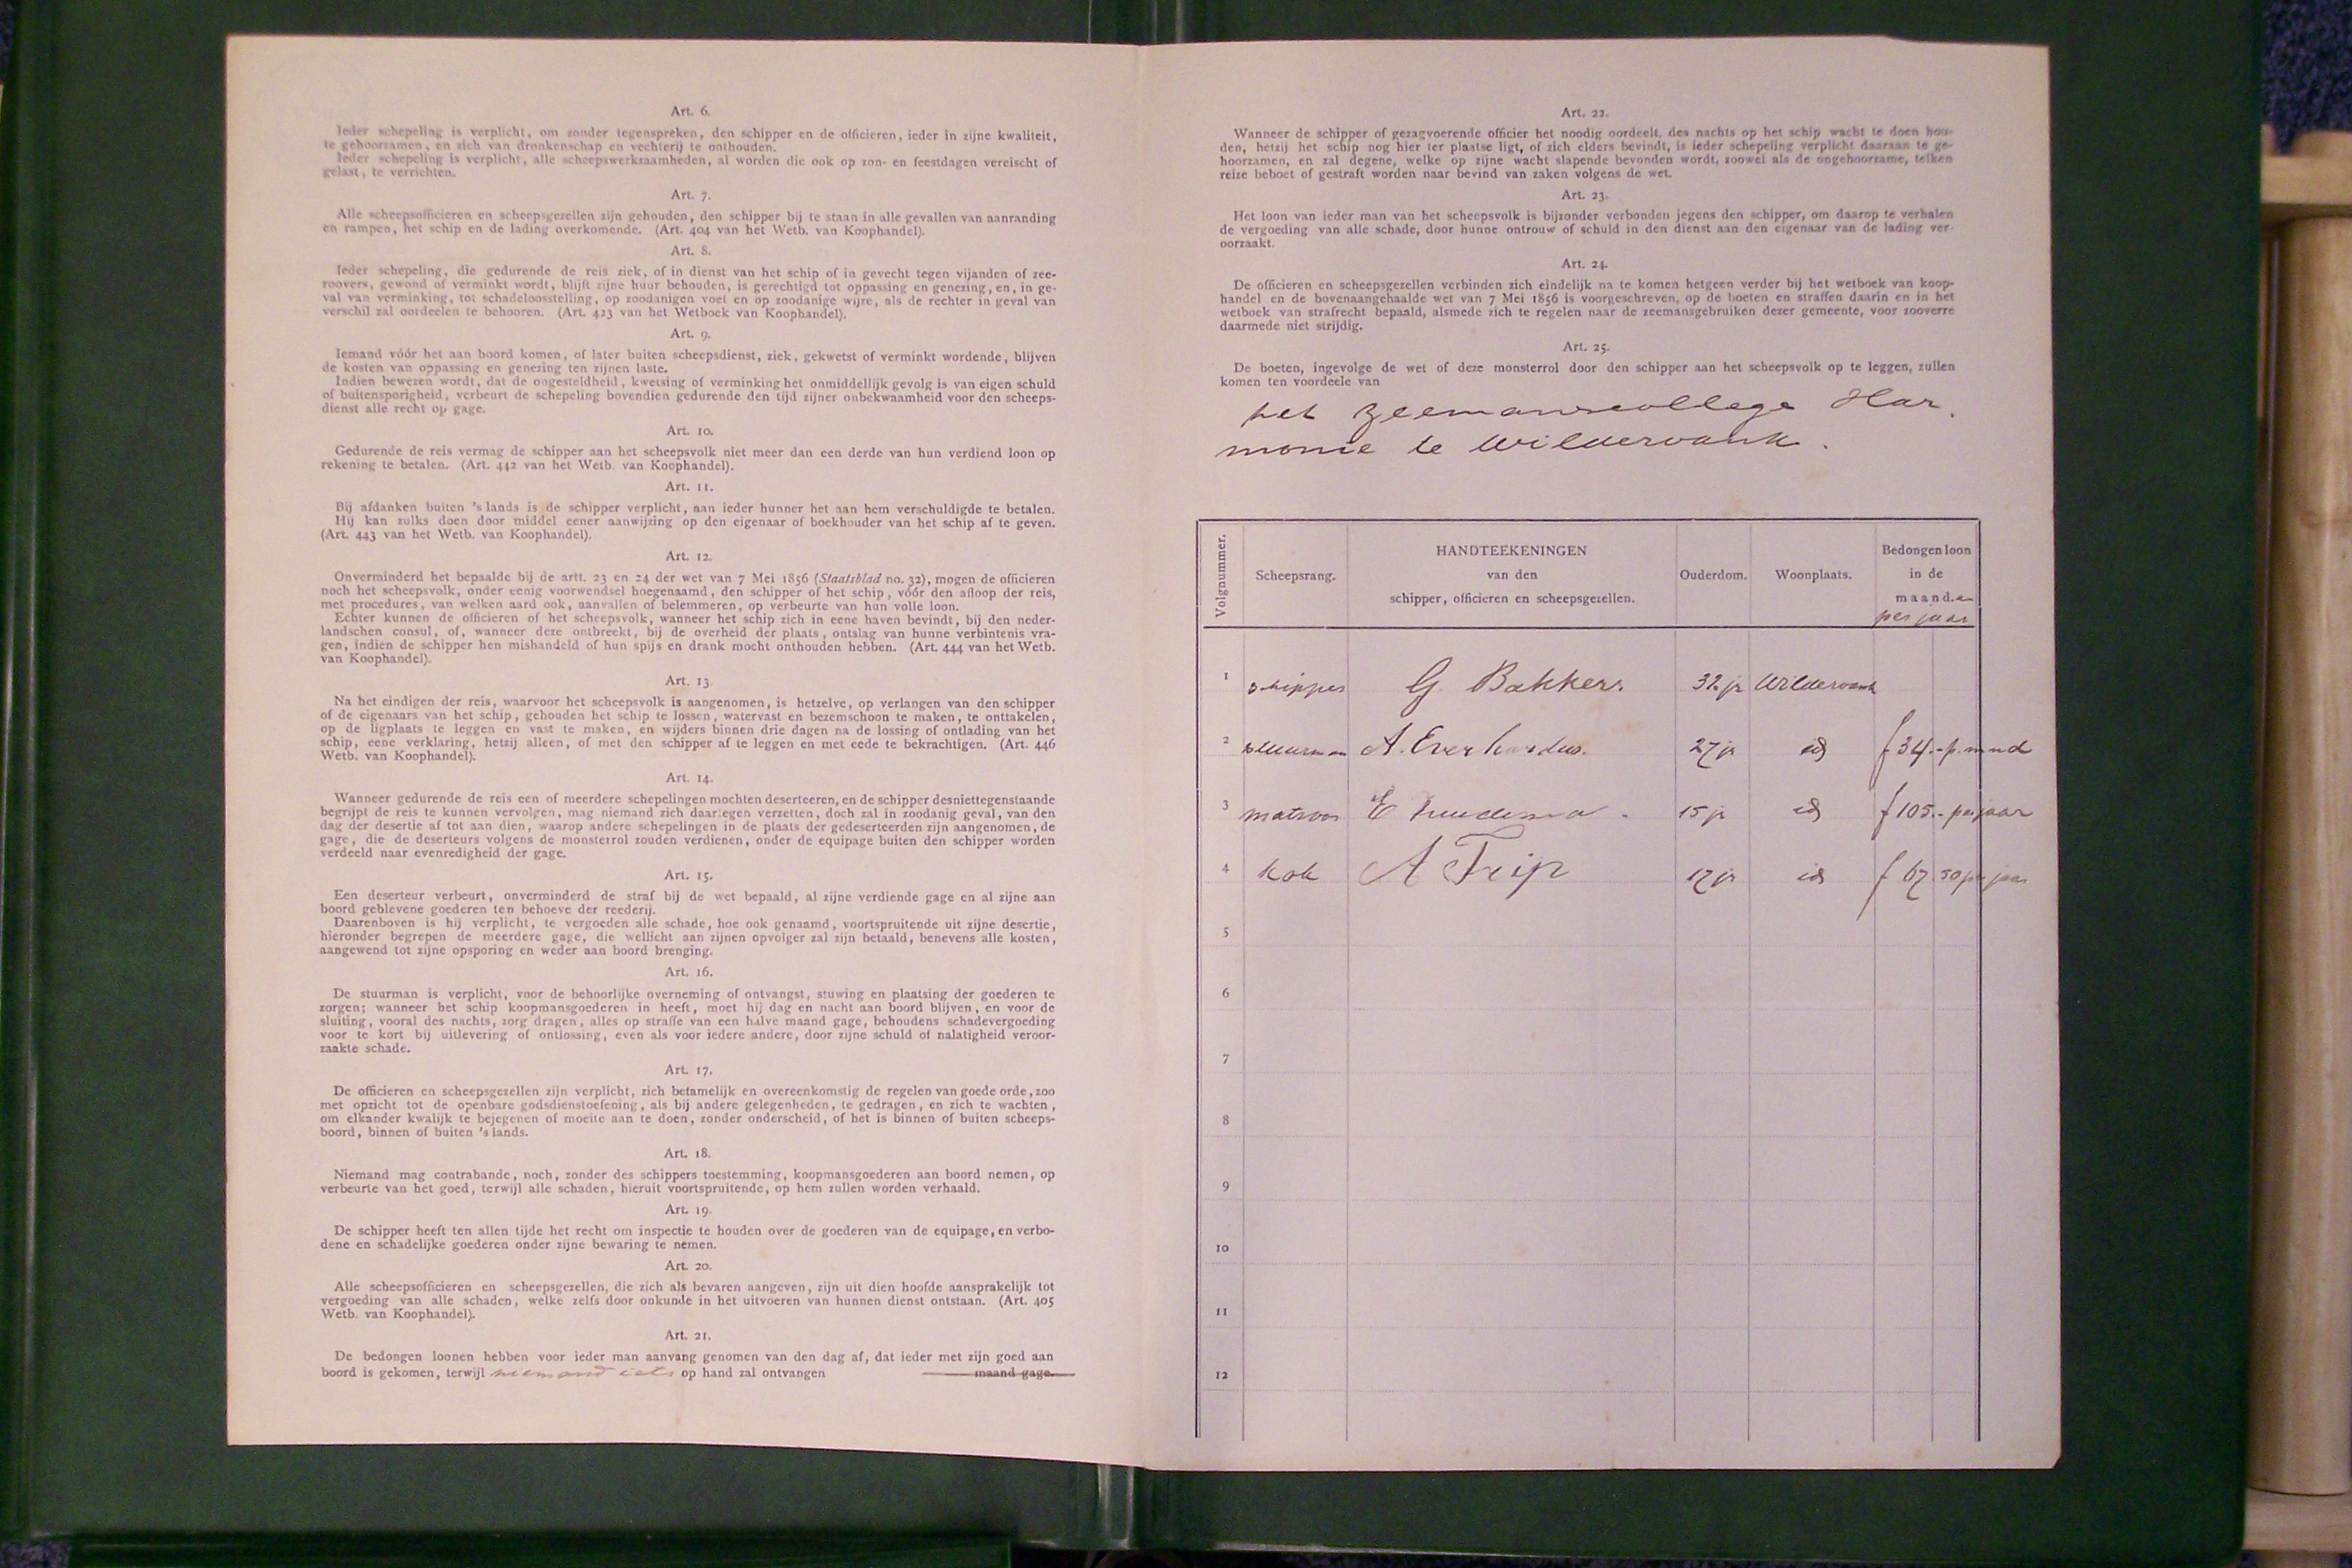 Art. 6.
Ieder schepeling is verplicht, om zonder tegenspreken, den schipper en de officieren, ieder in zijne kwaliteit,
te gehoorzamen, en zich van dronkenschap en vechterij te onthouden.
Ieder schepeling is verplicht, alle scheepswerkzaamheden, al worden die ook op zon- en feestdagen vereischt of
gelast, te verrichten.
Art. 7.
Alle scheepsofficieren en scheepsgezellen zijn gehouden, den schipper bij te staan in alle gevallen van aanranding
en rampen, het schip en de lading overkomende. (Art. 404 van het Wetb. van Koophandel).
Art. 8.
Ieder schepeling, die gedurende de reis ziek, of in dienst van het schip of in gevecht tegen vijanden of zee-
roovers, gewond of verminkt wordt, blijft zijne huur behouden, is gerechtigd tot oppassing en genezing, en, in ge-
val van verminking, tot schadeloosstelling, op zoodanigen voet en op zoodanige wijze, als de rechter in geval van
verschil zal oordeelen te behooren. (Art. 423 van het Wetboek van Koophandel).
Art. 9.
Iemand vóór het aan boord komen, of later buiten scheepsdienst, ziek, gekwetst of verminkt wordende, blijven
de kosten van oppassing en genezing ten zijnen laste.
Indien bewezen wordt, dat de ongesteldheid, kwetsing of verminking het onmiddellijk gevolg is van eigen schuld
of buitensporigheid, verbeurt de schepeling bovendien gedurende den tijd zijner onbekwaamheid voor den scheeps-
dienst alle recht op gage.
Art. 10.
Gedurende de reis vermag de schipper aan het scheepsvolk niet meer dan een derde van hun verdiend loon op
rekening te betalen. (Art. 442 van het Wetb. van Koophandel).
Art. 11.
Bij afdanken buiten 's lands is de schipper verplicht, aan ieder hunner het aan hem verschuldigde te betalen.
Hij kan zulks doen door middel eener aanwijzing op den eigenaar of boekhouder van het schip af te geven.
(Art. 443 van het Wetb. van Koophandel).
Art. 12.
Onverminderd het bepaalde bij de artt. 23 en 24 der wet van 7 Mei 1856 (Staatsblad no. 32), mogen de officieren
noch het scheepsvolk, onder eenig voorwendsel hoegenaamd, den schipper of het schip, vóór den afloop der reis,
met procedures, van welken aard ook, aanvallen of belemmeren, op verbeurte van hun volle loon.
Echter kunnen de officieren of het scheepsvolk, wanneer het schip zich in eene haven bevindt, bij den neder-
landschen consul, of, wanneer deze ontbreekt, bij de overheid der plaats, ontslag van hunne verbintenis vra-
gen, indien de schipper hen mishandeld of hun spijs en drank mocht onthouden hebben. (Art. 444 van het Wetb.
van Koophandel).
Art. 13.
Na het eindigen der reis, waarvoor het scheepsvolk is aangenomen, is hetzelve, op verlangen van den schipper
of de eigenaars van het schip, gehouden het schip te lossen, watervast en bezemschoon te maken, te onttakelen,
op de ligplaats te leggen en vast te maken, en wijders binnen drie dagen na de lossing of ontlading van het
schip, eene verklaring, hetzij alleen, of met den schipper af te leggen en met eede te bekrachtigen. (Art. 446
Wetb. van Koophandel).
Art. 14.
Wanneer gedurende de reis een of meerdere schepelingen mochten deserteeren, en de schipper desniettegenstaande
begrijpt de reis te kunnen vervolgen, mag niemand zich daartegen verzetten, doch zal in zoodanig geval, van den
dag der desertie af tot aan dien, waarop andere schepelingen in de plaats der gedeserteerden zijn aangenomen, de
gage, die de deserteurs volgens de monsterrol zouden verdienen, onder de equipage buiten den schipper worden
verdeeld naar evenredigheid der gage.
Art. 15.
Een deserteur verbeurt, onverminderd de straf bij de wet bepaald, al zijne verdiende gage en al zijne aan
boord geblevene goederen ten behoeve der reederij.
Daarenboven is hij verplicht, te vergoeden alle schade, hoe ook genaamd, voortspruitende uit zijne desertie,
hieronder begrepen de meerdere gage, die wellicht aan zijnen opvolger zal zijn betaald, benevens alle kosten,
aangewend tot zijne opsporing en weder aan boord brenging.
Art. 16.
De stuurman is verplicht, voor de behoorlijke overneming of ontvangst, stuwing en plaatsing der goederen te
zorgen; wanneer het schip koopmansgoederen in heeft, moet hij dag en nacht aan boord blijven, en voor de
sluiting, vooral des nachts, zorg dragen, alles op straffe van een halve maand gage, behoudens schadevergoeding
voor te kort bij uitlevering of ontlossing, even als voor iedere andere, door zijne schuld of nalatigheid veroor-
zaakte schade.
Art. 17.
De officieren en scheepsgezellen zijn verplicht, zich betamelijk en overeenkomstig de regelen van goede orde, zoo
met opzicht tot de openbare godsdienstoefening, als bij andere gelegenheden, te gedragen, en zich te wachten,
om elkander kwalijk te bejegenen of moeite aan te doen, zonder onderscheid, of het is binnen of buiten scheeps-
boord, binnen of buiten 's lands.
Art. 18.
Niemand mag contrabande, noch, zonder des schippers toestemming, koopmansgoederen aan boord nemen, op
verbeurte van het goed, terwijl alle schaden, hieruit voortspruitende, op hem zullen worden verhaald.
Art. 19.
De schipper heeft ten allen tijde het recht om inspectie te houden over de goederen van de equipage, en verbo-
dene en schadelijke goederen onder zijne bewaring te nemen.
Art. 20.
Alle scheepsofficieren en scheepsgezellen, die zich als bevaren aangeven, zijn uit dien hoofde aansprakelijk tot
vergoeding van alle schaden, welke zelfs door onkunde in het uitvoeren van hunnen dienst ontstaan. (Art. 405
Wetb. van Koophandel).
Art. 21.
De bedongen loonen hebben voor ieder man aanvang genomen van den dag af, dat ieder met zijn goed aan
boord is gekomen, terwijl niemand iets op hand zal ontvangen maand gage.
Art. 22.
Wanneer de schipper of gezagvoerende officier het noodig oordeelt, des nachts op het schip wacht te doen hou-
den, hetzij het schip nog hier ter plaatse ligt, of zich elders bevindt, is ieder schepeling verplicht daaraan te ge-
hoorzamen, en zal degene, welke op zijne wacht slapende bevonden wordt, zoowel als de ongehoorzame, telken
reize beboet of gestraft worden naar bevind van zaken volgens de wet.
Art. 23.
Het loon van ieder man van het scheepsvolk is bijzonder verbonden jegens den schipper, om daarop te verhalen
de vergoeding van alle schade, door hunne ontrouw of schuld in den dienst aan den eigenaar van de lading ver-
oorzaakt.
Art. 24.
De officieren en scheepsgezellen verbinden zich eindelijk na te komen hetgeen verder bij het wetboek van koop-
handel en de bovenaangehaalde wet van 7 Mei 1856 is voorgeschreven, op de boeten en straffen daarin en in het
wetboek van strafrecht bepaald, alsmede zich te regelen naar de zeemansgebruiken dezer gemeente, voor zooverre
daarmede niet strijdig.
Art. 25.
De boeten, ingevolge de wet of deze monsterrol door den schipper aan het scheepsvolk op te leggen, zullen
komen ten voordeele van
het Zeemanscollege Har.
monie te Wildervank.
Volgnummer. Scheepsrang. HANDTEEKENINGEN van den schipper, officieren en scheepsgezellen. Ouderdom. Woonplaats. Bedongen loon in de maand. en per jaar
1 schipper G. Bakker. 32 jr Wildervank
2 stuurman A. Everhardus. 27 jr id f 34.- p. mnd
3 matroos 15 jr id f 105.- per jaar
4 kok A Trip 17 jr id f 67.50 per jaar
5
6
7
8
9
10
11
12